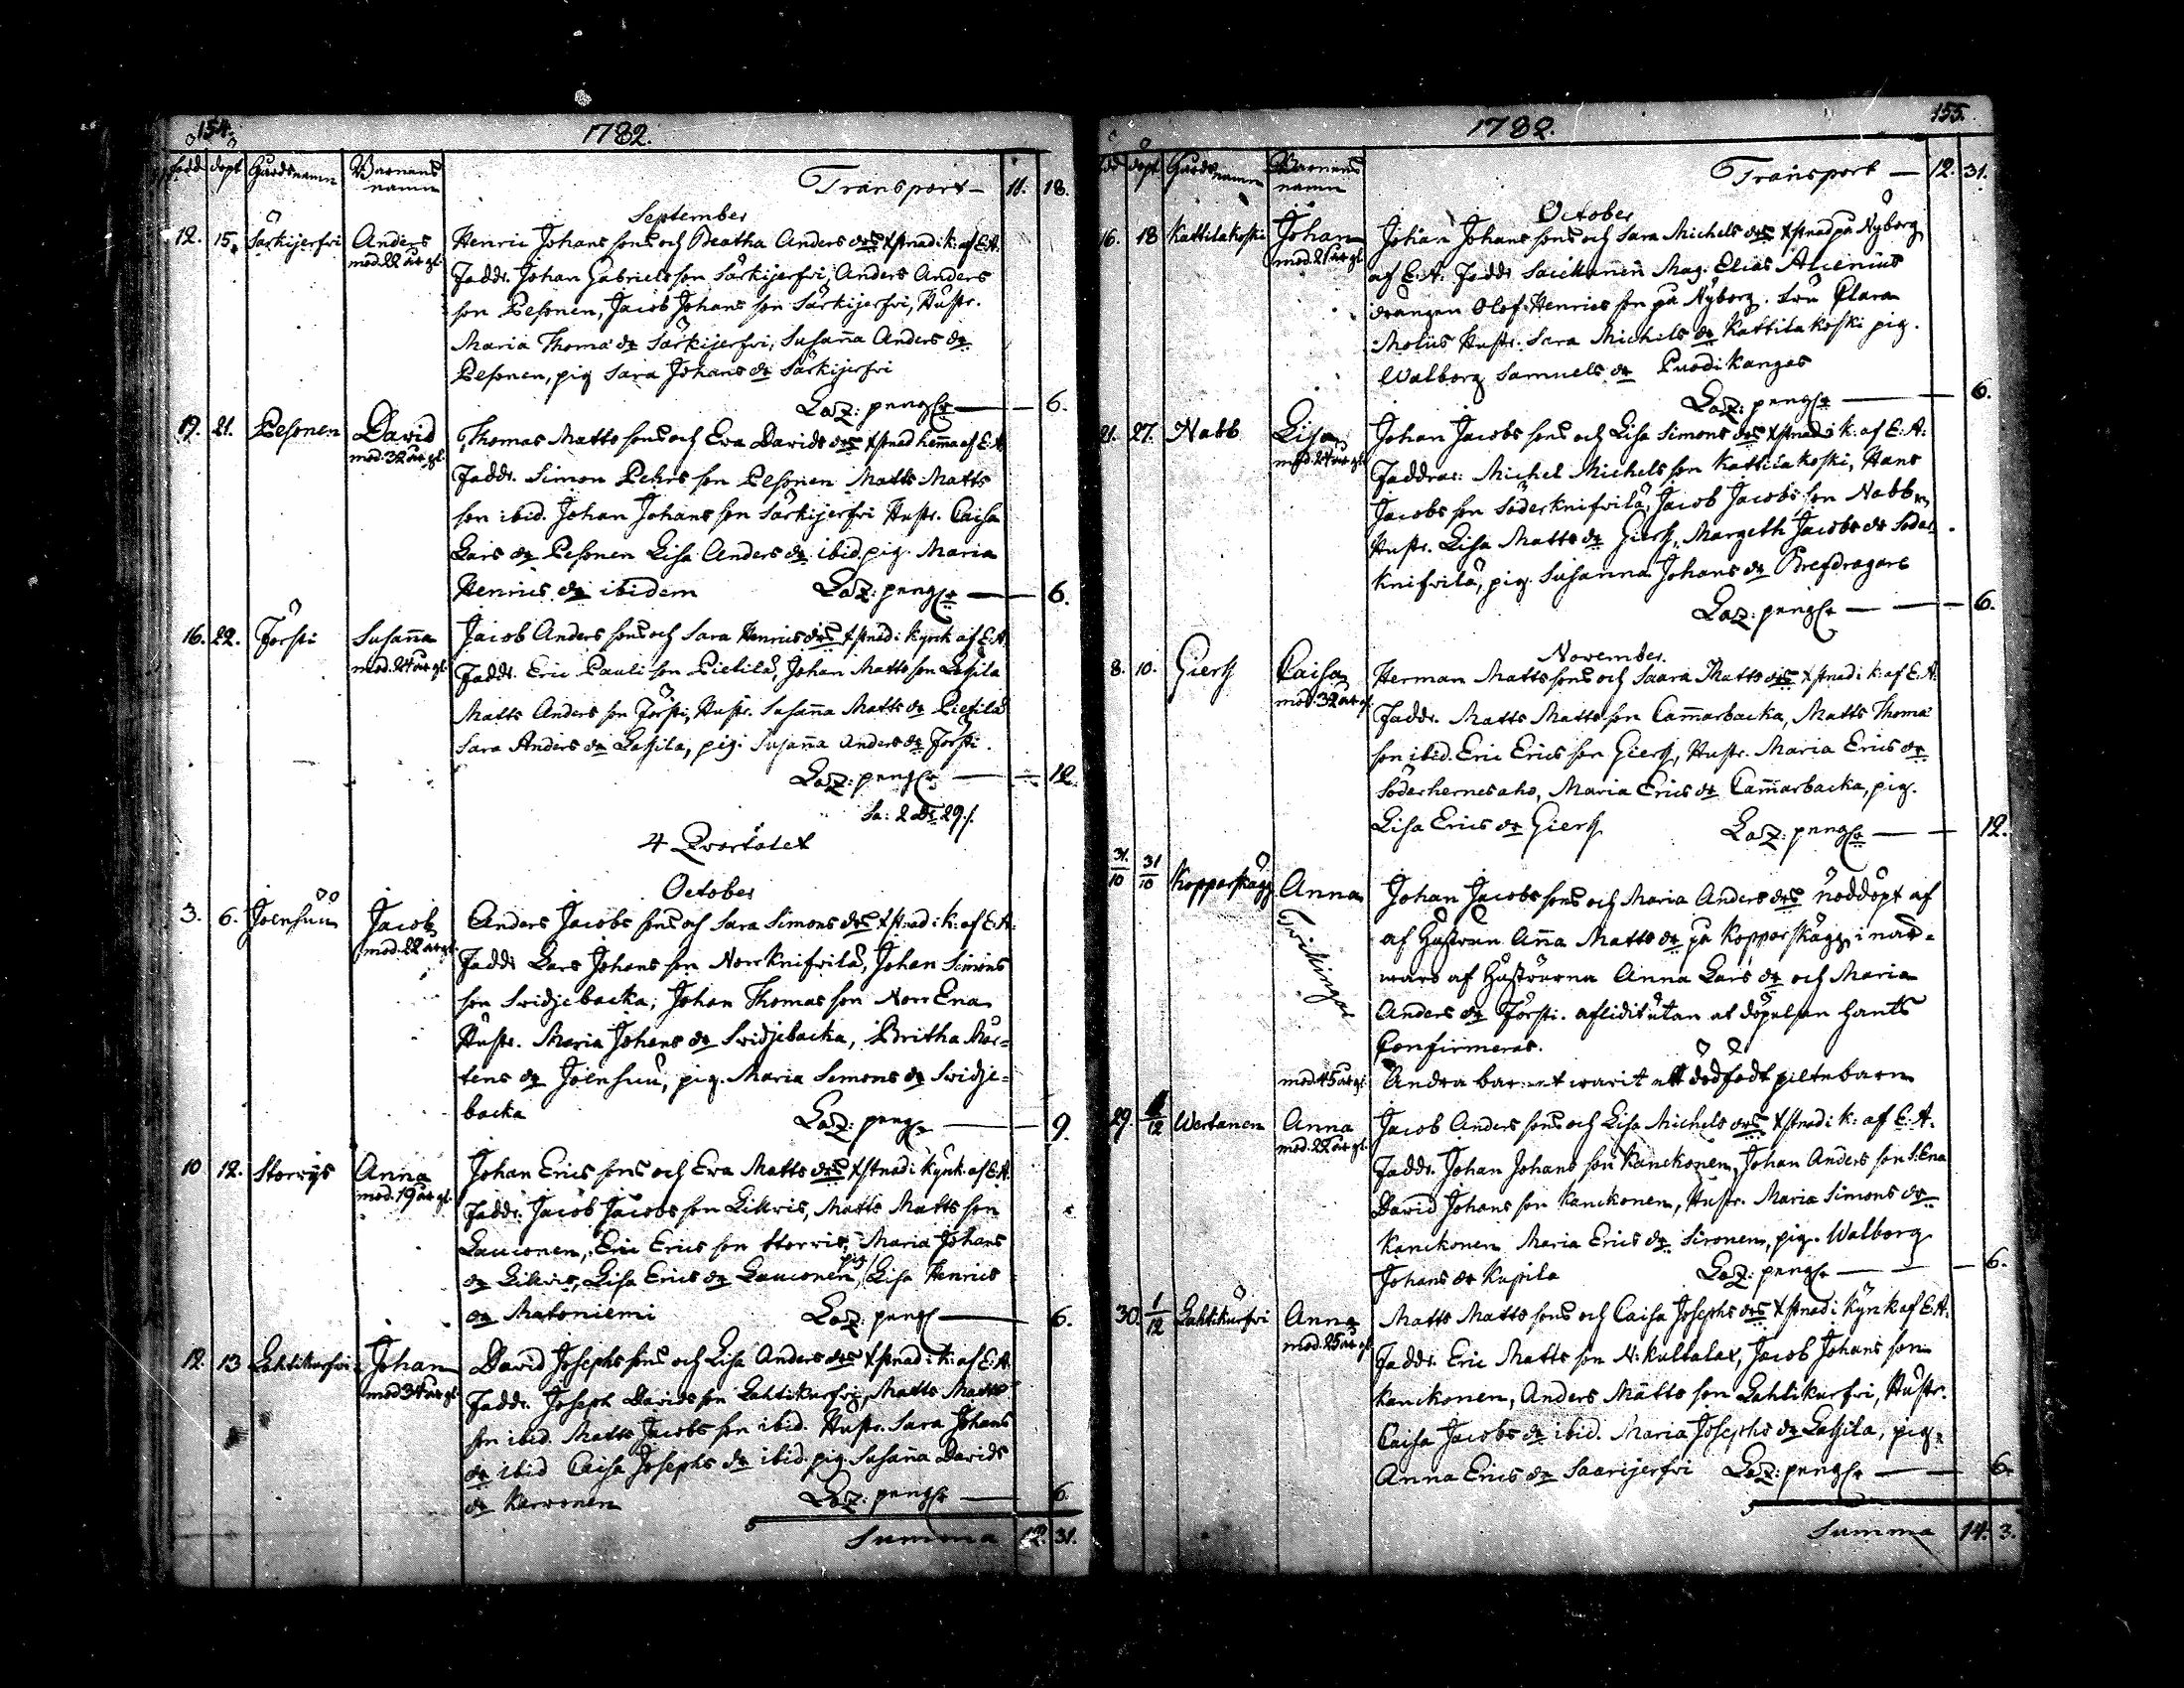 154.
1782.
född döpt Gårdsnamn Barnens namn
Transport 11. 18.
September
12. 15. Särkijerfvi Anders Henric Johans sons och Beatha Anders drs xstnad i k: af E:A.
mod. 22 år gl. Faddr. Johan Gabriels son Särkijerfvi, Anders Anders
son Pesonen, Jacob Johans son Särkijerfvi, Hustr.
Maria Thoma dr Särkijerfvi, Susanna Anders dr
Pesonen, pig Sara Johans dr Särkijerfvi
Laz: pengr — 6.
19. 21. Pesonen David Thomas Matts sons och Eva Davids drs xstnad hemma af E:A
mod. 32 år gl. Faddr. Simon Pehrs son Pesonen Matts Matts
son ibid. Johan Johans son Särkijerfvi Hustr. Caisa
Lars dr Pesonen Lisa Anders dr ibid. pig. Maria
Henrics dr ibidem Laz: pengr — 6.
16. 22. Försti Susanna Jacob Anders sons och Sara Henrics drs xstnad i kyrck af E:A
mod. 24 år gl. Faddr. Eric Pauli son Pietilä, Johan Matts son Lassila
Matts Anders son Försti, Hustr. Susanna Matts dr Pietilä
Sara Anders dr Lassila, pig. Susanna Anders dr Försti.
Laz: pengr — 12.
Sa: 2 dr 29 /.
4 Qvartalet
October
3. 6. Joensuu Jacob Anders Jacobs sons och Sara Simons drs xstnad i k: af E:A:
mod. 22 år gl. Faddr Lars Johans son Norrknifvilä, Johan Simons
son Svidjebacka, Johan Thomas son Norr Ena
Hustr. Maria Johans dr Svidjebacka, Britha Mår=
tens dr Joensuu, pig. Maria Simons dr Svidje=
backa Laz: pengr — 9.
10 12. Storrijs Anna Johan Erics sons och Eva Matts drs xstnad i kyrk: af E:A.
mod. 19 år gl. Faddr. Jacob Jacobs son Likvis, Matts Matts son
Lauconen, Eric Erics son Storris, Maria Johans
dr Likvis, Lisa Erics dr Lauconen, pig Lisa Henrics
dr Matoniemi Laz: pengr — 6.
12. 13 Lahtikurfvi Johan David Josephs sons och Lisa Anders drs xstnad i k: af E:A.
mod 34 år gl. Faddr. Joseph Davids son Lahtikurfvi, Matts Matts
son ibid. Matts Jacobs son ibid. Hustr. Sara Johans
dr ibid Caisa Josephs dr ibid. pig. Susanna Davids
dr Karvonen Laz: pengr — 6.
Summa 12. 31.
155.
1782.
född döpt Gårdsnamn Barnens namn
Transport — 12. 31.
October
16. 18 Kattilakoski Johan Johan Johans sons och Sara Michels drs xstnad på Nyborg
mod. 21 år gl. af E:A. Faddr. Mag: Elias Alcenius
drängen Olof Henrics son på Nyborg. Fru Clara
Moliis Hustr. Sara Michels dr Kattilakoski pig.
Walborg Samuels dr Puodikangas
Laz: pengr — 6.
21. 27. Nabb Lisa Johan Jacobs sons och Lisa Simons drs xstnad i k: af E:A:
mod. 24 år gl. Faddrar: Michel Michels son Kattilakoski, Hans
Jacobs son Söderknifvilä, Jacob Jacobs son Nabb
Hustr. Lisa Matts dr Giers, Margeth Jacobs dr Söder=
knifvilä, pig. Susanna Johans dr Brefdragars
Laz: pengr — 6.
November.
8. 10. Giers Caisa Herman Matts sons och Saara Matts drs xstnad i k: af E:A:
mod. 32 år gl. Faddr. Matts Matts son Cammarbacka, Matts Thoma
son ibid. Eric Erics son Giers, Hustr. Maria Erics dr
Söderhernesaho, Maria Erics dr Cammarbacka, pig.
Lisa Erics dr Giers Laz: pengr — 12.
31/10 31/10 Kopparskägg Anna Johan Jacobs sons och Maria Anders drs nöddöpt af
Tvillingar af Hustrun Anna Matts dr på Kopparskägg i när=
waro af Hustrurna Anna Lars dr och Maria
Anders dr Försti. aflidit utan at döpelsen hants
Confirmeras.
mod 45 år gl. Andra barnet warit ett dödfödt piltebarn
29. 1/12 Wertanen Anna Jacob Anders sons och Lisa Michels drs xstnad i k: af E:A.
mod. 22 år gl. Faddr. Johan Johans son Kanckonen, Johan Anders son S. Ena
David Johans son Kanckonen, Hustr. Maria Simons dr
Kanckonen Maria Erics dr Sironen, pig. Walborg
Johans dr Kupila Laz: pengr — 6.
30. 1/12 Lahtikurfvi Anna Matts Matts sons och Caisa Josephs drs xstnad i kyrk af E:A:
mod. 25 år gl Faddr. Eric Matts son N: Kultalax, Jacob Johans son
Kanckonen, Anders Matts son Lahtikurfvi, Hustr.
Caisa Jacobs dr ibid. Maria Josephs dr Lassila, pig.
Anna Erics dr Saarijerfvi Laz: pengr — 6.
Summa 14. 3.